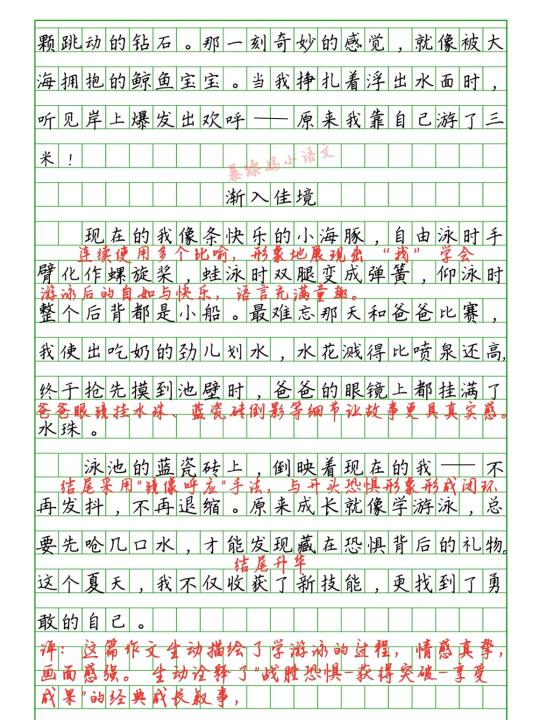 颗跳动的钻石。那一刻奇妙的感觉，就像被大
海拥抱的鲸鱼宝宝。当我挣扎着浮出水面时，
听见岸上爆发出欢呼——原来我靠自己游了三
米！
暴躁妈小语文
渐入佳境
现在的我像条快乐的小海豚，自由泳时手
连续使用多个比喻，形象地展现出“我”学会
臂化作螺旋桨，蛙泳时双腿变成弹簧，仰泳时
游泳后的自如与快乐，语言充满童趣。
整个后背都是小船。最难忘那天和爸爸比赛，
我使出吃奶的劲儿划水，水花溅得比喷泉还高，
终于抢先摸到池壁时，爸爸的眼镜上都挂满了
爸爸眼镜挂水珠、蓝瓷砖倒影等细节让故事更具真实感。
水珠。
泳池的蓝瓷砖上，倒映着现在的我——不
结尾采用"镜像呼应"手法，与开头恐惧形象形成闭环
再发抖，不再退缩。原来成长就像学游泳，总
要先呛几口水，才能发现藏在恐惧背后的礼物。
结尾升华
这个夏天，我不仅收获了新技能，更找到了勇
敢的自己。
评：这篇作文生动描绘了学游泳的过程，情感真挚，
画面感强。生动诠释了"战胜恐惧-获得突破-享受
成果"的经典成长叙事，